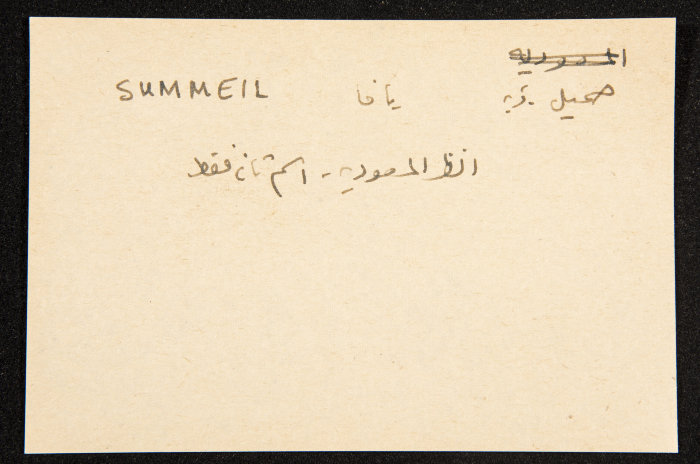 صميل قرية يافا SUMMEIL
انظر المسعودية - اسم ثان فقط